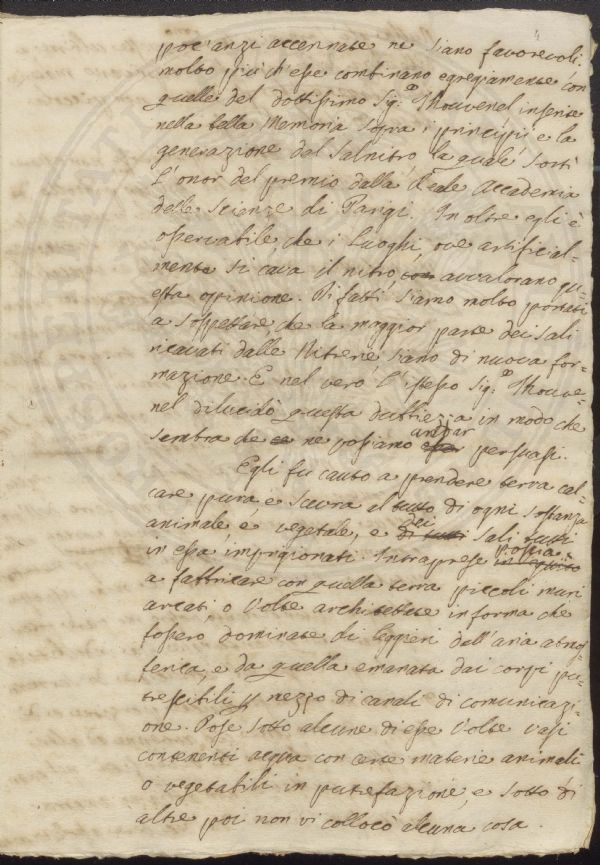 poc'anzi accennate ne siano favorevoli.
molto più ch'esse combinano egregiamente con
quelle del dottissimo Sig.r Thouvenel inserite
nella bella Memoria sopra i principii e la
generazione del Salnitro, la quale sortì
l'onor del premio dalla Reale Accademia
delle Scienze di Parigi. In oltre egli è
osservabile, che i Luoghi, ove artificial-
mente si cava il nitro, con avvalorano qu-
esta opinione. Di fatti siamo molto portati
a sospettare, che la maggior parte dei Sali
ricavati dalle Nitriere, siano di nuova for-
mazione. E nel vero l'istesso Sig.r Thouve-
nel dilucidò questa dubbiezza in modo che
sembra che ce ne possiamo esser andar persuasi.
Egli fu cauto a prendere terra cal-
care pura, e scevra al tutto di ogni sostanza
animale e vegetale, e di tutti dei sali tutti
in essa imprigionati. Intraprese in seguito poscia
a fabbricare con quella terra piccoli muri
arcati, o volte architettate in forma che
fossero dominate di leggieri dell'aria atmos-
ferica, e da quella emanata dai corpi pu-
trescibili p mezzo di canali di comunicazi-
one. Pose sotto alcune di esse volte vasi
contenenti acqua con certe materie animali
o vegetabili in putrefazione, e sotto di
altre poi non vi collocò alcuna cosa.